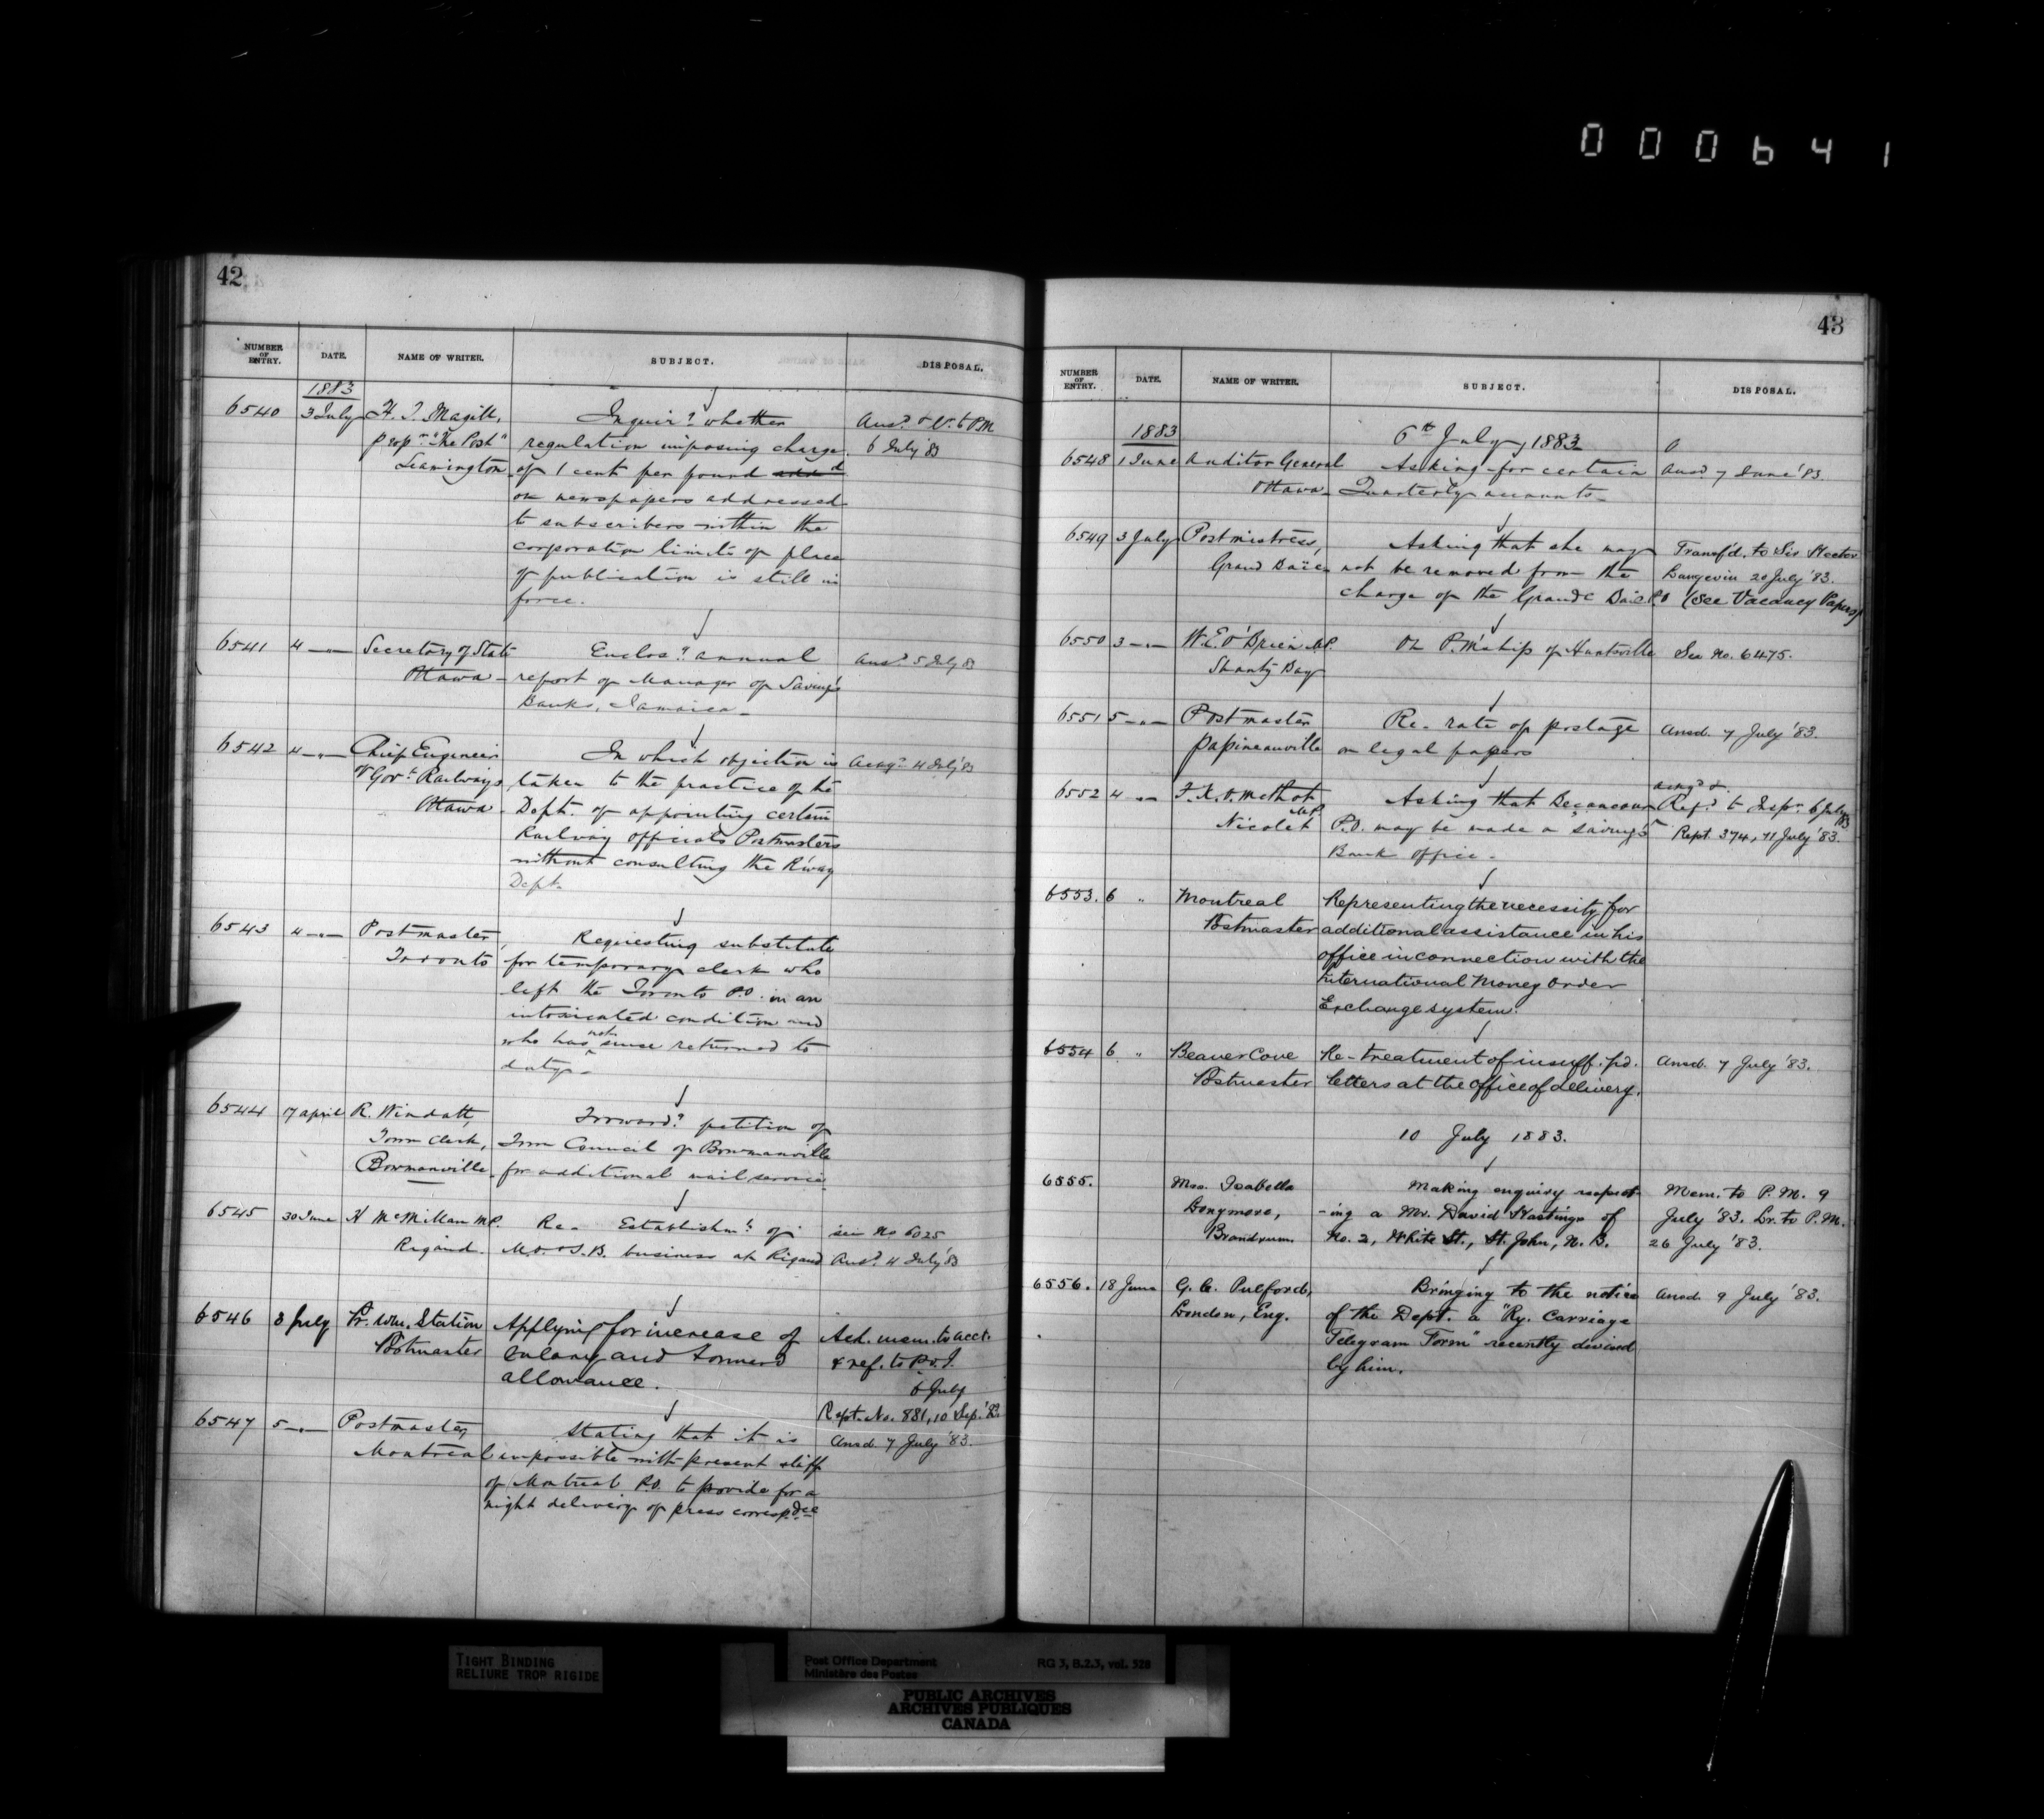 000641
42
NUMBER OF ENTRY. DATE. NAME OF WRITER. SUBJECT. DISPOSAL.
1883
6540 3 July H. T. Magill, Inquirg whether Ansd & V. to P.M
propr "The Post" regulation imposing charge 6 July 83
Leamington of 1 cent per pound
on newspapers addressed
to subscribers within the
corporation limits of place
of publication is still in
force.
6541 4 -"- Secretary of State Enclosg annual Ansd 5 July 83
Ottawa - report of Manager of Savings
Banks, Jamaica -
6542 4 -"- Chief Engineer In which objection is Ackgd 4 July 83
of Govt Railways taken to the practice of the
Ottawa - Dept. of appointing certain
Railway officials Postmasters
without consulting the R'way
Dept.
6543 4 -"- Postmaster, Requesting substitute
Toronto for temporary clerk who
left the Toronto P.O. in an
intoxicated condition and
who has not since returned to
duty -
6544 17 April R. Windatt, Forwardg petition of
Town Clerk, Town Council of Bowmanville
Bowmanville - for additional mail service
6545 30 June H McMillan MP. Re- Establishmt of see No 6025
Rigaud - M.O. & S.B. business at Rigaud Ansd 4 July '83
6546 3 July Pr. Wm. Station Applying for increase of Ack. mem. to acct.
Postmaster salary and forward & ref. to P.O.I.
allowance. 6 July
Rept. No. 881, 10 Sep. '83
6547 5 -"- Postmaster, Stating that it is Ansd. 7 July '83.
Montreal impossible with present staff
of Montreal P.O. to provide for a
night delivery of press correspdce
43
NUMBER OF ENTRY. DATE. NAME OF WRITER. SUBJECT. DISPOSAL.
1883 6th July, 1883
6548 1 June Auditor General Asking for certain Ansd. 7 June '83.
Ottawa - Quarterly accounts -
6549 3 July Postmistress, Asking that she may Transf'd. to Sir Hector
Grand Baie not be removed from the Langevin 20 July '83.
charge of the Grande Baie P.O (See Vacancy Papers)
6550 3 -"- W. E. O'Brien M.P. Re P.M'ship of Huntsville See No. 6475.
Shanty Bay
6551 5 -"- Postmaster Re- rate of postage Ansd. 7 July '83.
Papineauville on legal papers
6552 4 -"- F. X. O. Methot Asking that Becancour Ackgd &
MP Refd to Inspr 6 July 83
Nicolet P.O. may be made a Savings Rept. 374, 11 July '83.
Bank office -
6553. 6 " Montreal Representing the necessity for
Postmaster additional assistance in his
office in connection with the
International Money Order
Exchange system.
6554 6 " Beaver Cove Re- treatment of insuff. pd. Ansd. 7 July '83.
Postmaster letters at the office of delivery.
10 July 1883.
6555. Mrs. Isabella Making enquiry respect- Mem. to P. M. 9
Longmore, -ing a Mr. David Hastings of July '83. Lr. to P.M.
No. 2, White St., St. John, N. B. 26 July '83.
6556. 18 June G. C. Pulford, Bringing to the notice Ansd. 9 July '83.
London, Eng. of the Dept. a "Ry. Carriage
Telegram Form" recently devised
by him.
TIGHT BINDING
RELIURE TROP RIGIDE
Post Office Department RG 3, B.2.3, vol. 528
Ministère des Postes
PUBLIC ARCHIVES
ARCHIVES PUBLIQUES
CANADA